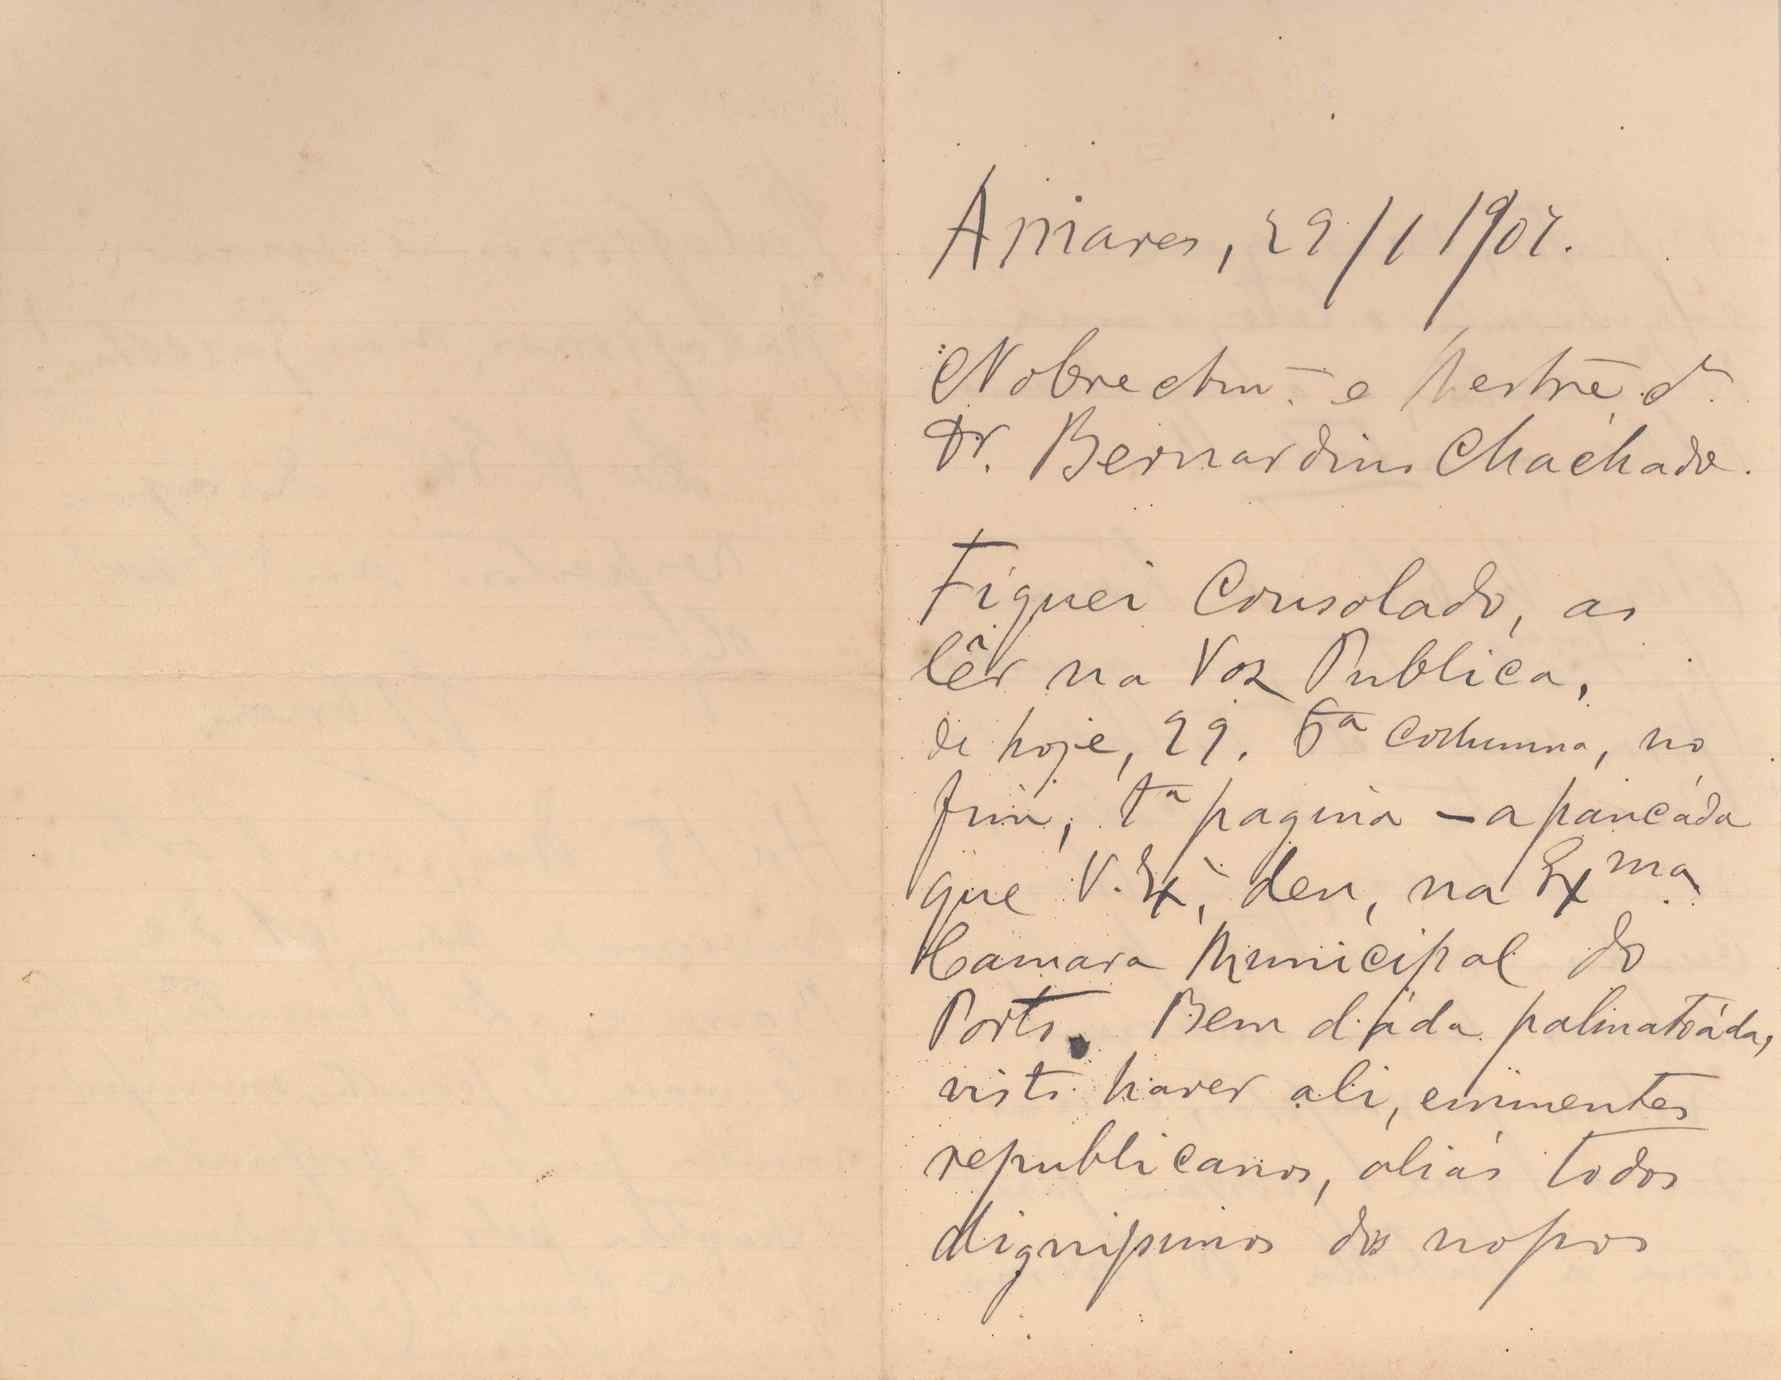 Amares, 29/1 1907.
Nobre Am.º e Mestre, Sr.
Dr. Bernardino Machado.
Fiquei consolado, ao
lêr na Voz Publica,
de hoje, 29, 6ª columna, no
fim, 1ª pagina — a pancáda
que V. Ex.ª deu, na Exma.
Camara Municipal do
Porto. Bem dáda palmatoáda,
visto haver ali, eminentes
republicanos, aliás todos
dignissimos dos nossos